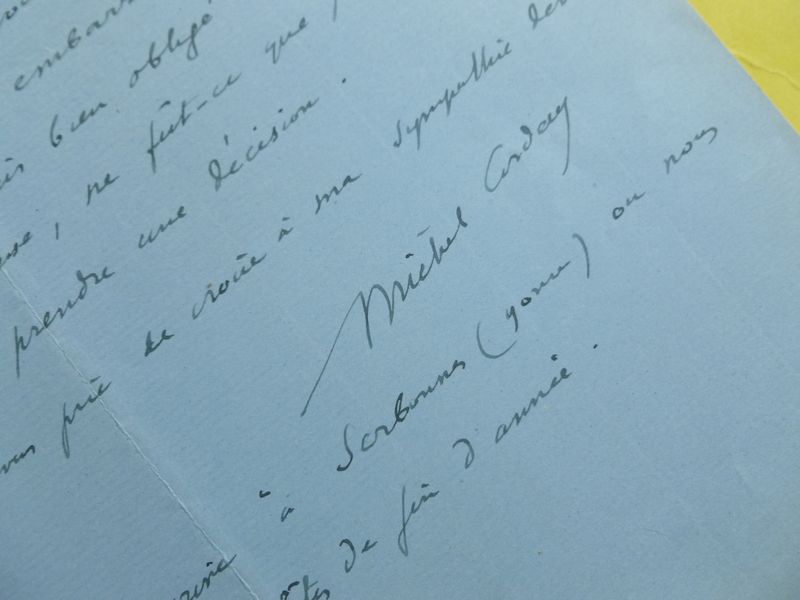 embarr
bien obligé
, ne fût-ce que
prendre une décision.
prie de croire à ma sympathie
Michel Corday
à Serbonnes (Yonne) où nous
de fin d'année.